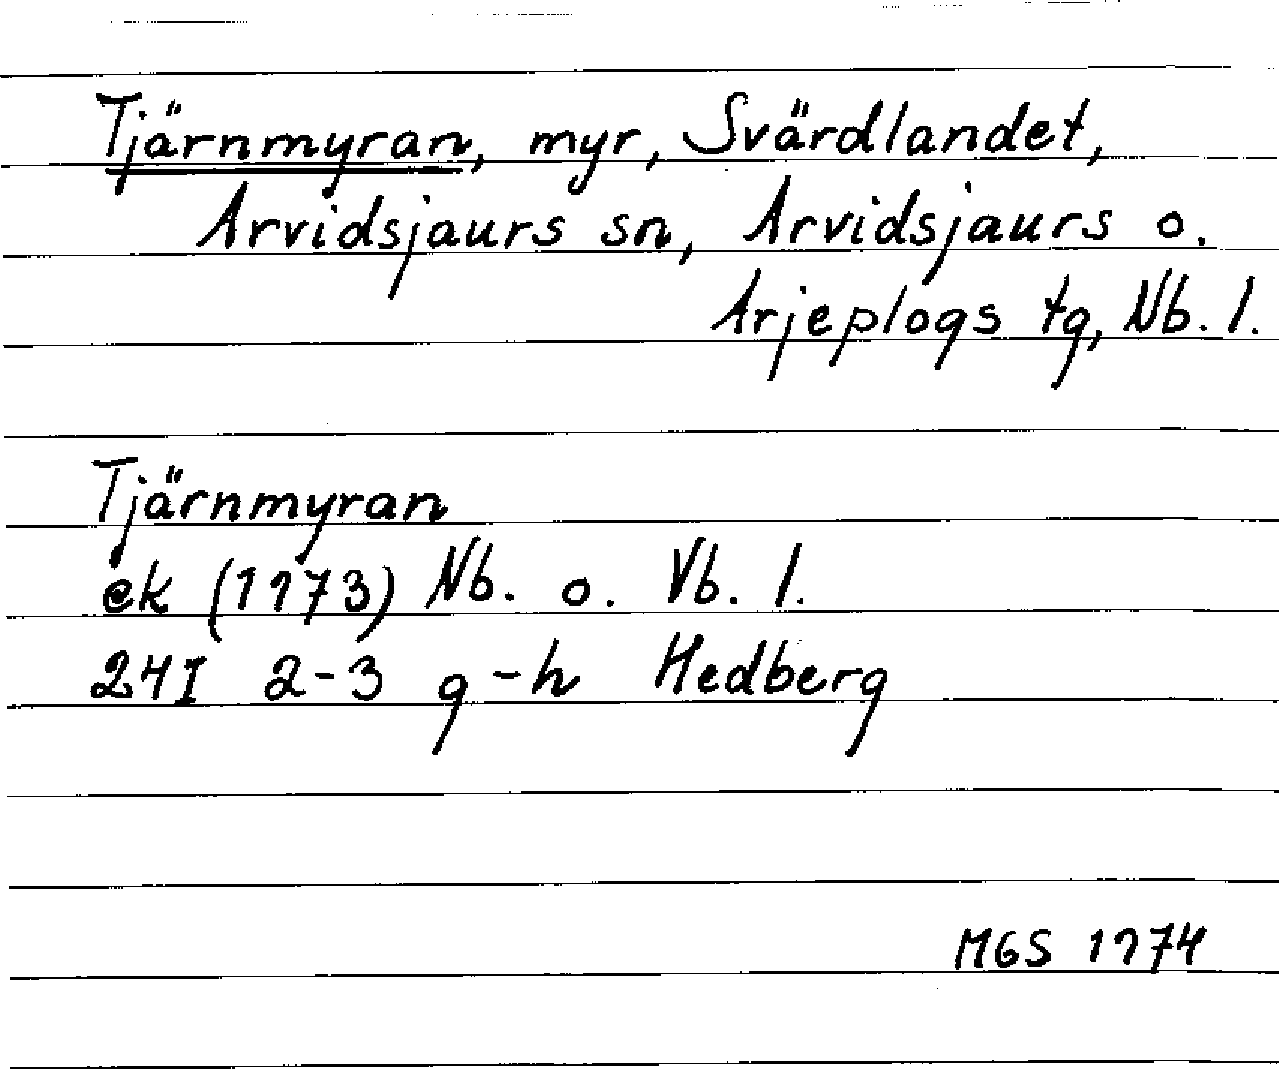 Tjärnmyran, myr, Svärdlandet,
Arvidsjaurs sn, Arvidsjaurs o.
Arjeplogs tg, Nb. l.
Tjärnmyran
ek (1973) Nb. o. Vb. l.
24I 2-3 g-h Hedberg
MGS 1974